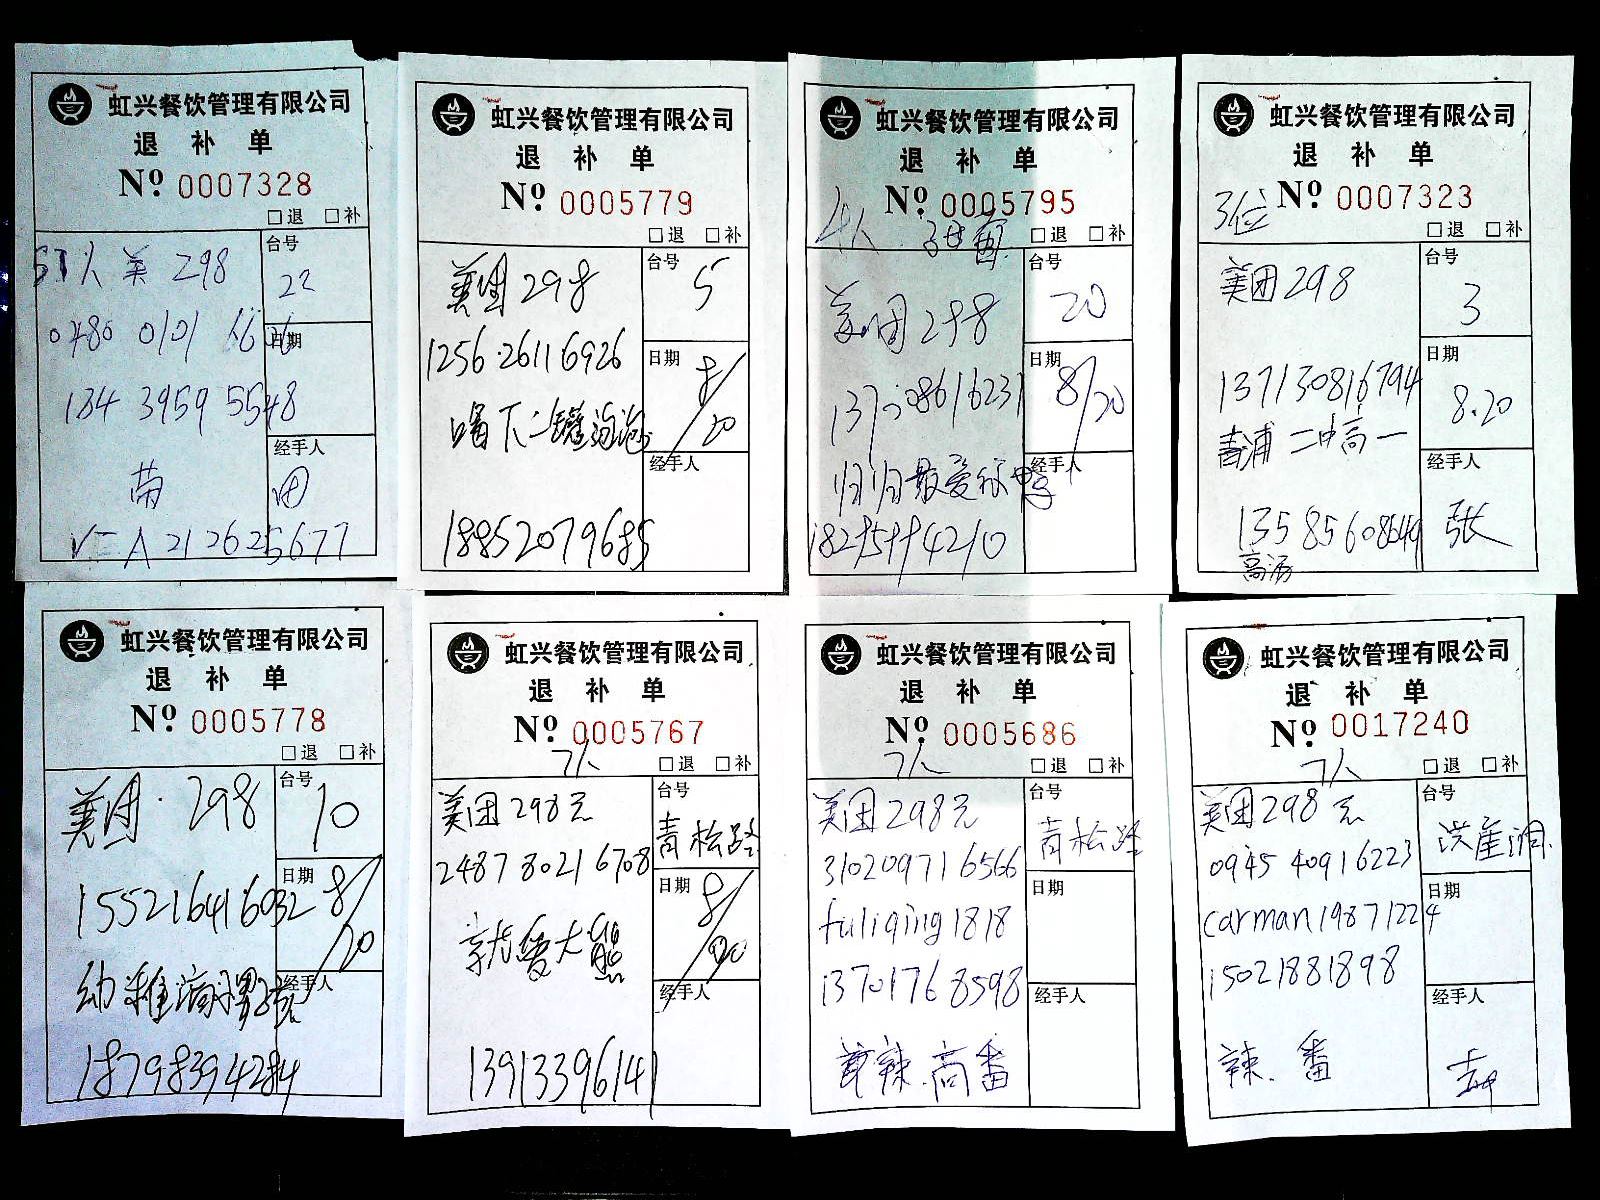 虹兴餐饮管理有限公司
退 补 单
Nº 0007328
□退 □补
人 美 298
台号
22
0480 0101 6626
日期
184 3959 5548
经手人
V=A 2126255677
虹兴餐饮管理有限公司
退 补 单
Nº 0005779
□退 □补
美团 298
台号
5
1256 26116926
日期
8/20
喝下二罐泡泡
经手人
18852079685
虹兴餐饮管理有限公司
退 补 单
Nº 0005795
4人
□退 □补
美团 298
台号
20
日期
8/20
经手人
虹兴餐饮管理有限公司
退 补 单
Nº 0007323
3位
□退 □补
美团 298
台号
3
137130816794
日期
8.20
青浦二中高一
经手人
张
13585608649
虹兴餐饮管理有限公司
退 补 单
Nº 0005778
□退 □补
美团 · 298
台号
10
155216416032
日期
8/20
经手人
18798394284
虹兴餐饮管理有限公司
退 补 单
Nº 0005767
7人
□退 □补
美团 298元
台号
青松路
2487 8021 6708
日期
8/20
就爱大熊
经手人
13913396141
虹兴餐饮管理有限公司
退 补 单
Nº 0005686
7人
□退 □补
美团 298元
台号
青松路
310209716566
日期
fuliqing1818
13701768598
经手人
辣.高番
虹兴餐饮管理有限公司
退 补 单
Nº 0017240
7人
□退 □补
美团 298元
台号
0945 40916223
日期
carman19871224
15021881898
经手人
辣.番